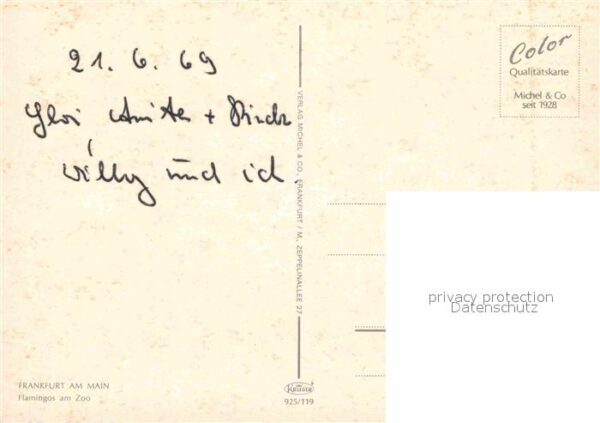 21. 6. 69
+
Willy und ich.
Color
Qualitätskarte
Michel & Co
seit 1928
VERLAG MICHEL & CO., FRANKFURT / M., ZEPPELINALLEE 27
privacy protection
Datenschutz
FRANKFURT AM MAIN
Flamingos am Zoo
Krüger
925/119